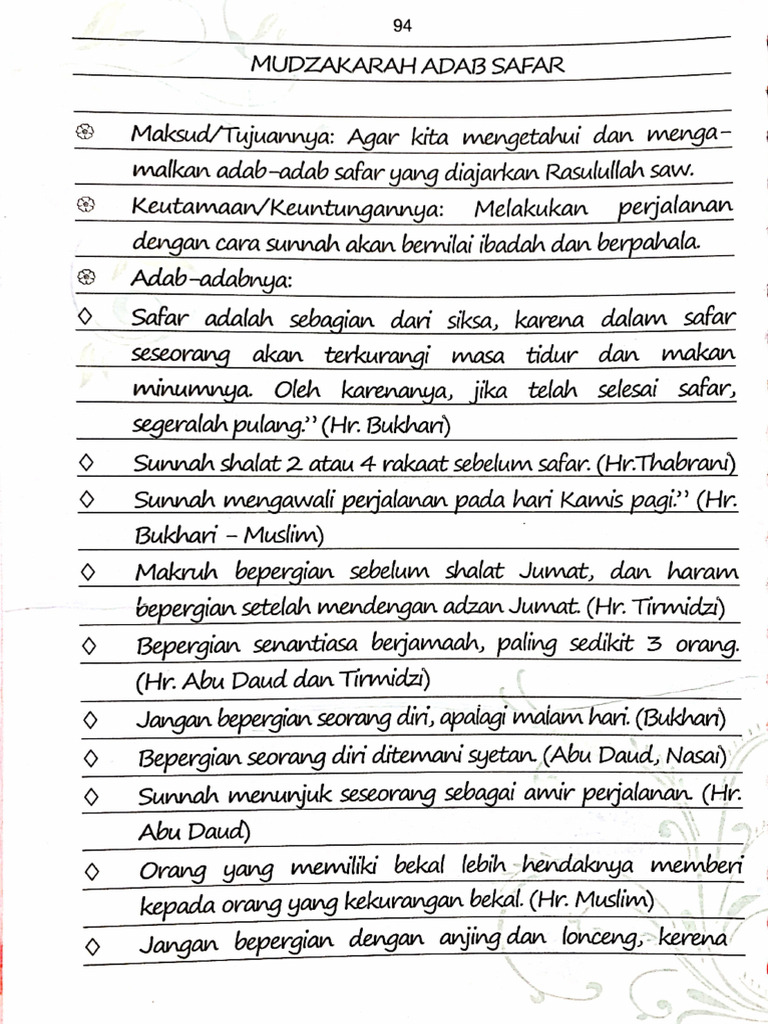 94
MUDZAKARAH ADAB SAFAR
Maksud/Tujuannya: Agar kita mengetahui dan menga-
malkan adab-adab safar yang diajarkan Rasulullah saw.
Keutamaan/Keuntungannya: Melakukan perjalanan
dengan cara sunnah akan bernilai ibadah dan berpahala.
Adab-adabnya:
◇ Safar adalah sebagian dari siksa, karena dalam safar
seseorang akan terkurangi masa tidur dan makan
minumnya. Oleh karenanya, jika telah selesai safar,
segeralah pulang." (Hr. Bukhari)
◇ Sunnah shalat 2 atau 4 rakaat sebelum safar. (Hr.Thabrani)
◇ Sunnah mengawali perjalanan pada hari Kamis pagi." (Hr.
Bukhari - Muslim)
◇ Makruh bepergian sebelum shalat Jumat, dan haram
bepergian setelah mendengan adzan Jumat. (Hr. Tirmidzi)
◇ Bepergian senantiasa berjamaah, paling sedikit 3 orang.
(Hr. Abu Daud dan Tirmidzi)
◇ Jangan bepergian seorang diri, apalagi malam hari. (Bukhari)
◇ Bepergian seorang diri ditemani syetan. (Abu Daud, Nasai)
◇ Sunnah menunjuk seseorang sebagai amir perjalanan. (Hr.
Abu Daud)
◇ Orang yang memiliki bekal lebih hendaknya memberi
kepada orang yang kekurangan bekal. (Hr. Muslim)
◇ Jangan bepergian dengan anjing dan lonceng, kerena